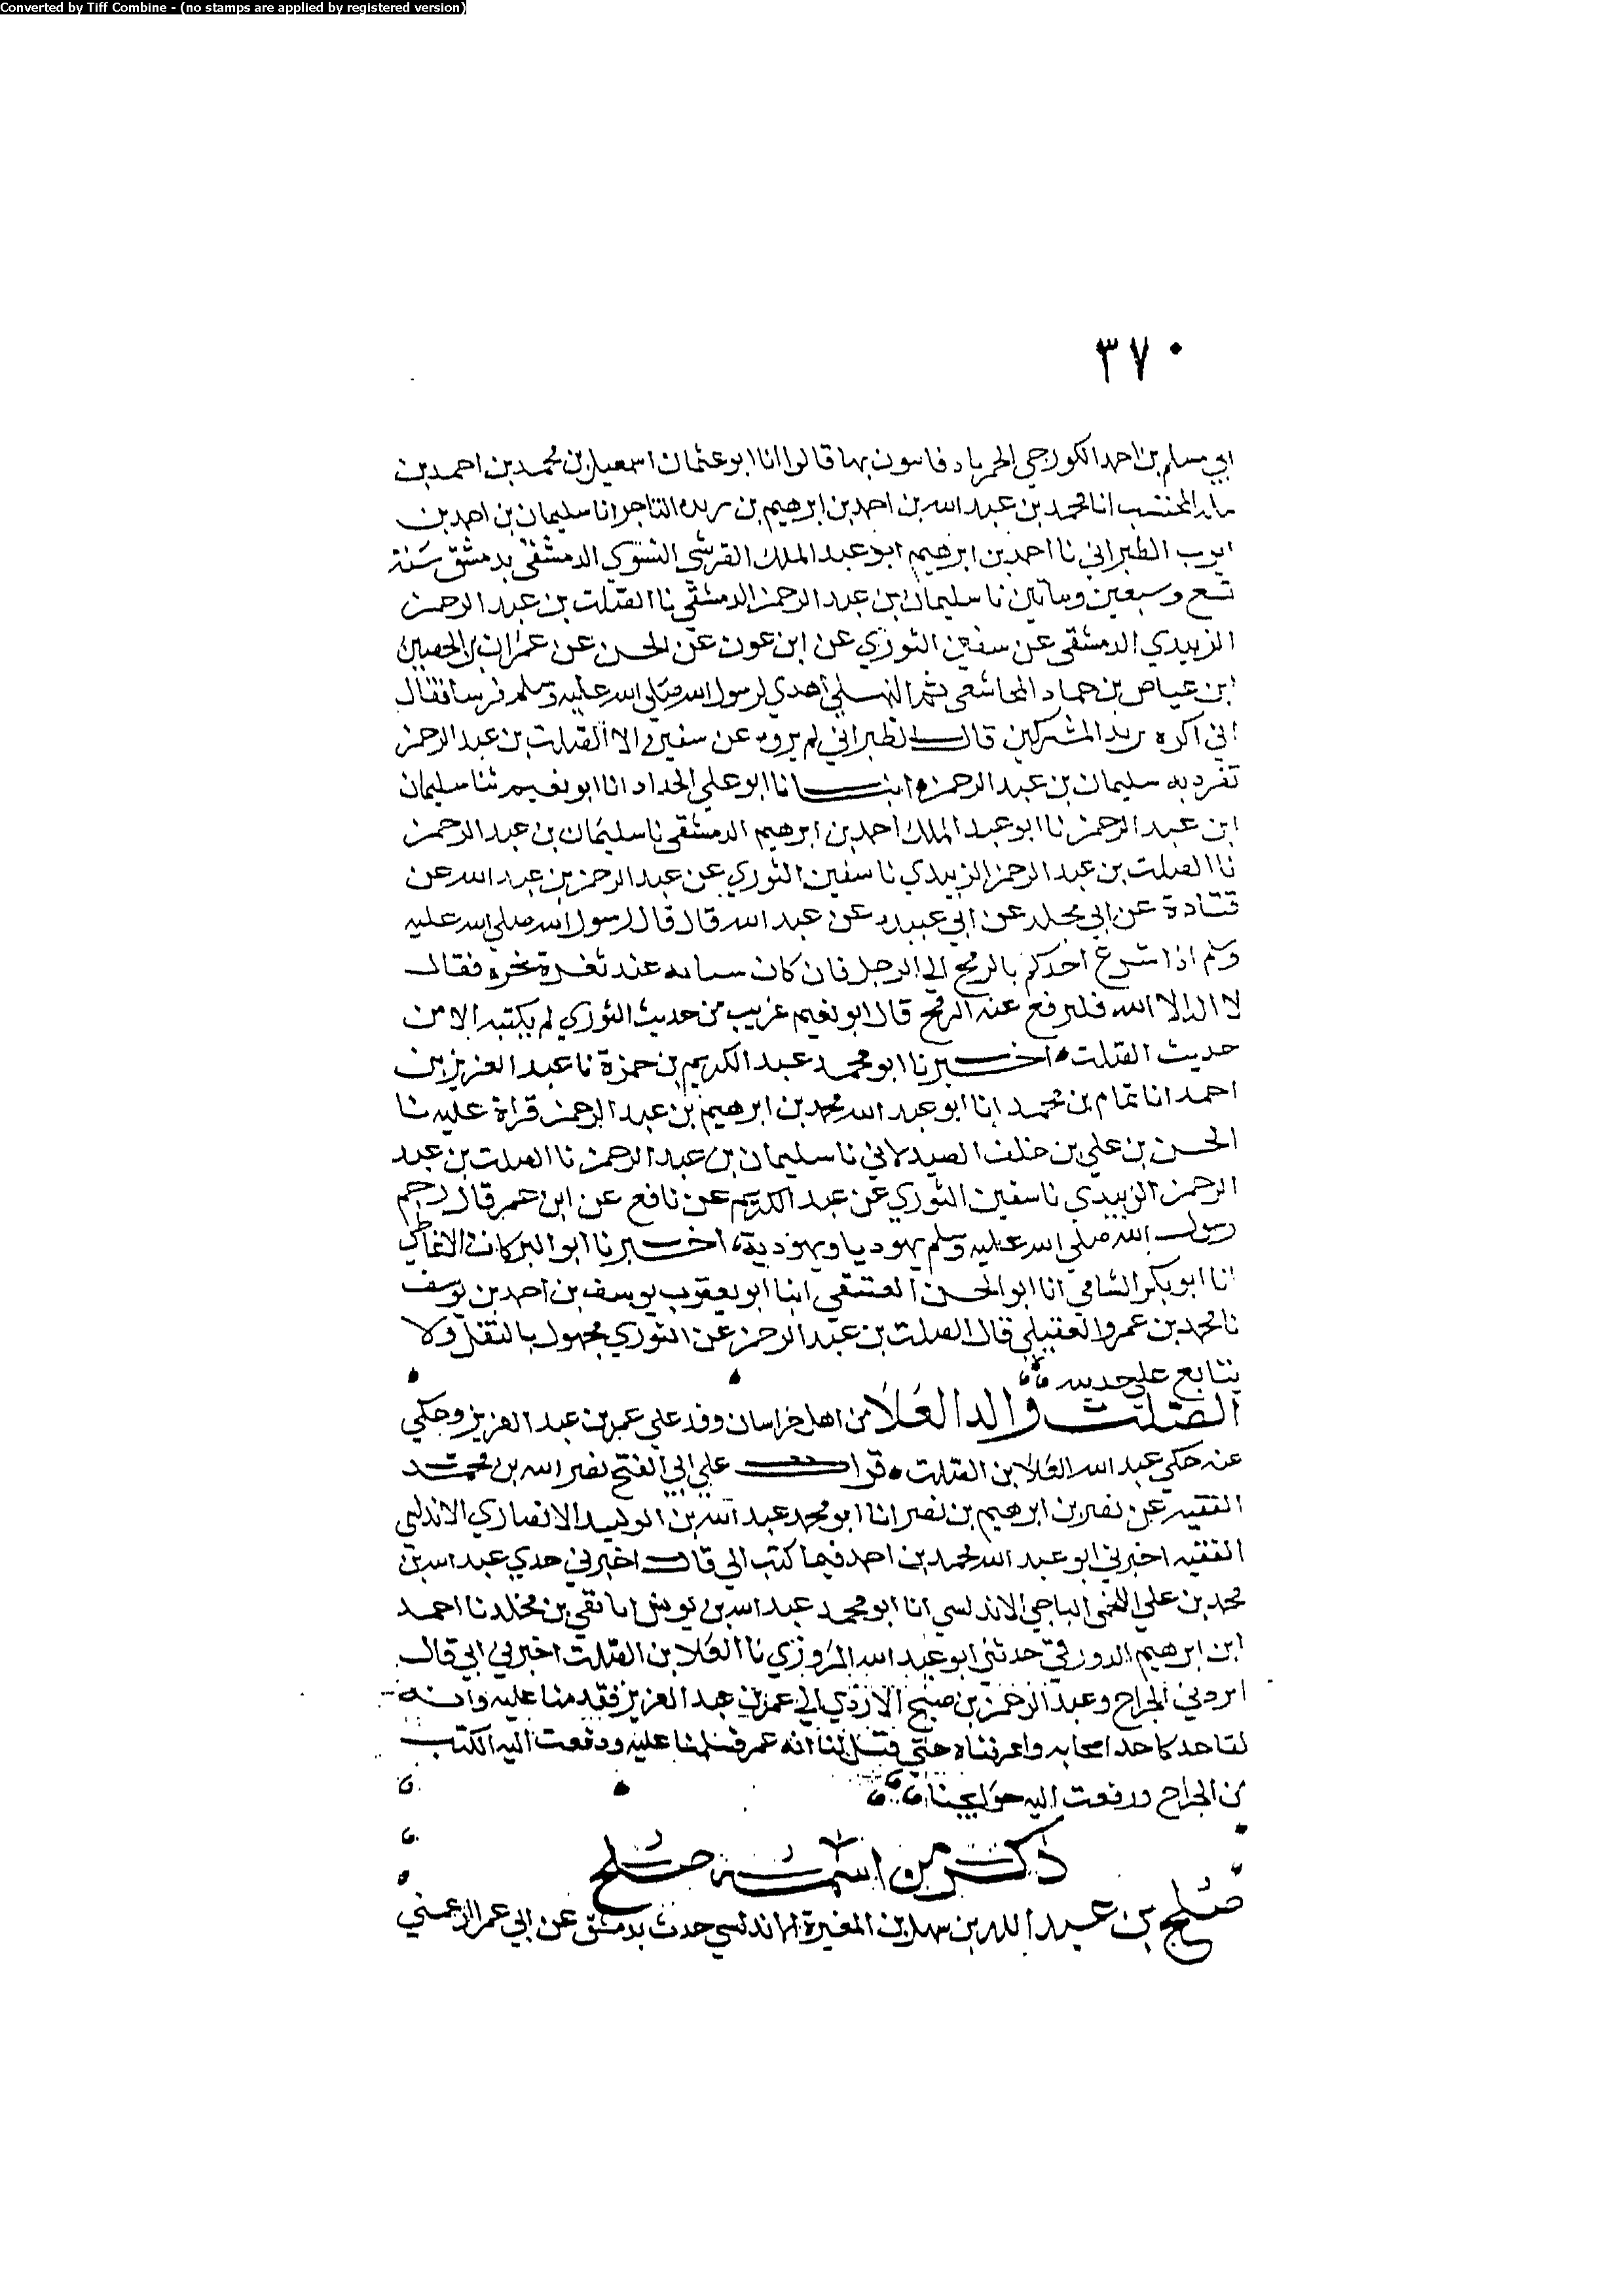 Converted by Tiff Combine - (no stamps are applied by registered version)
٣٧٠
ابي مسلم بن احمد الكورجي قالوا انا ابو عثمان اسمعيل بن محمد بن احمد بن
المحتسب انا محمد بن عبد الله بن احمد بن ابرهيم بن ريده التاجر انا سليمان بن احمد بن
ايوب الطبراني نا احمد بن ابرهيم ابو عبد الملك القرشي الدمشقي بدمشق سنة
تسع وسبعين ومائتين نا سليمان بن عبد الرحمن الدمشقي نا الصلت بن عبد الرحمن
الزبيدي الدمشقي عن سفين الثوري عن ابن عون عن الحسن عن عمران بن الحصين
ابن عياض بن حماد المجاشعي ثم النهشلي اهدي لرسول الله صلى الله عليه وسلم فرسا فقال
اني اكره زبد المشركين قال الطبراني لم يروه عن سفين الا الصلت بن عبد الرحمن
تفرد به سليمان بن عبد الرحمن انبانا ابو علي الحداد انا ابو نعيم ثنا سليمان
ابن عبد الرحمن نا ابو عبد الملك احمد بن ابرهيم الدمشقي نا سليمان بن عبد الرحمن
نا الصلت بن عبد الرحمن الزبيدي نا سفين الثوري عن عبد الرحمن بن عبد الله عن
قتادة عن ابي مجلد عن ابي عبيده عن عبد الله قال قال رسول الله صلى الله عليه
وسلم اذا شرع احدكم بالرمح الى الرجل فان كان سنانه عند ثغرة نحره فقال
لا اله الا الله فليرفع عنه الرمح قال ابو نعيم غريب من حديث الثوري لم يكتبه الا من
حديث الصلت اخبرنا ابو محمد عبد الكريم بن حمزة نا عبد العزيز بن
احمد انا تمام بن محمد انا ابو عبد الله محمد بن ابرهيم بن عبد الرحمن قراة عليه نا
الحسن بن علي بن خلف الصيدلاني نا سليمان بن عبد الرحمن نا الصلت بن عبد
الرحمن الزبيدي نا سفين الثوري عن عبد الكريم عن نافع عن ابن عمر قال رجم
رسول الله صلى الله عليه وسلم يهوديا ويهودية اخبرنا ابو البركات الانماطي
انا ابو بكر الشامي انا ابو الحسن العتيقي انبا ابو يعقوب يوسف بن احمد بن يوسف
نا محمد بن عمرو العقيلي قال الصلت بن عبد الرحمن عن الثوري مجهول بالنقل ولا
يتابع على حديثه
الصلت والد العلا من اهل خراسان وفد على عمر بن عبد العزيز وحكي
عنه حكى عبد الله العلا بن الصلت قرات على ابي الفتح نصر الله بن محمد
الفقيه عن نصر بن ابرهيم بن نصر انا ابو محمد عبد الله بن الوليد الانصاري الاندلسي
الفقيه اخبرني ابو عبد الله محمد بن احمد فيما كتب الي قال اخبرني جدي عبد الله بن
محمد بن علي اللخمي الباجي الاندلسي انا ابو محمد عبد الله بن يونس انا بقي بن مخلد نا احمد
ابن ابرهيم الدورقي حدثني ابو عبد الله المروزي نا العلا بن الصلت اخبرني ابي قال
ابردني الجراح وعبد الرحمن بن صبح الازدي الى عمر بن عبد العزيز فقدمنا عليه وانه
لقاعد كاحد اصحابه وما عرفناه حتى قيل لنا انه عمر فسلمنا عليه ودفعت اليه الكتب
من الجراح ورفعت اليه حوايجنا
ذكر من اسمه صلح
صلح بن عبد الله بن سهل بن المغيرة الاندلسي حدث بدمشق عن ابي عمر الزعيني